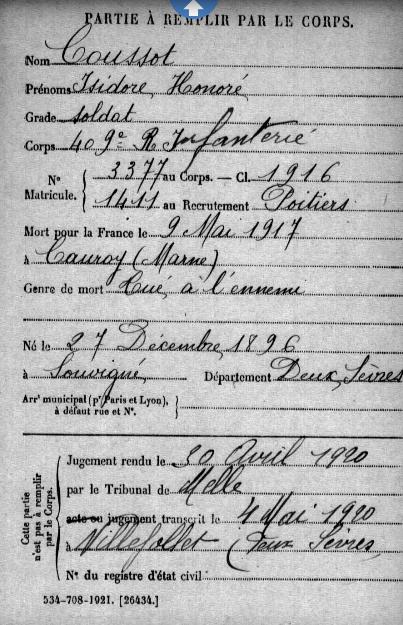 PARTIE À REMPLIR PAR LE CORPS.
Nom Coussot
Prénoms Isidore Honoré
Grade soldat
Corps 409e R Infanterie
N° 3377 au Corps. — Cl. 1916
Matricule. 1411 au Recrutement Poitiers
Mort pour la France le 9 Mai 1917
à Cauroy (Marne)
Genre de mort Tué à l'ennemi
Né le 27 Décembre 1896
à Souvigné Département Deux Sèvres
Arrt municipal (pr Paris et Lyon),
à défaut rue et N°.
Cette partie
n'est pas à remplir
par le Corps.
Jugement rendu le 30 Avril 1920
par le Tribunal de Melle
acte ou jugement transcrit le 4 Mai 1920
à Villefollet (Deux Sèvres
N° du registre d'état civil
534-708-1921. [26434.]